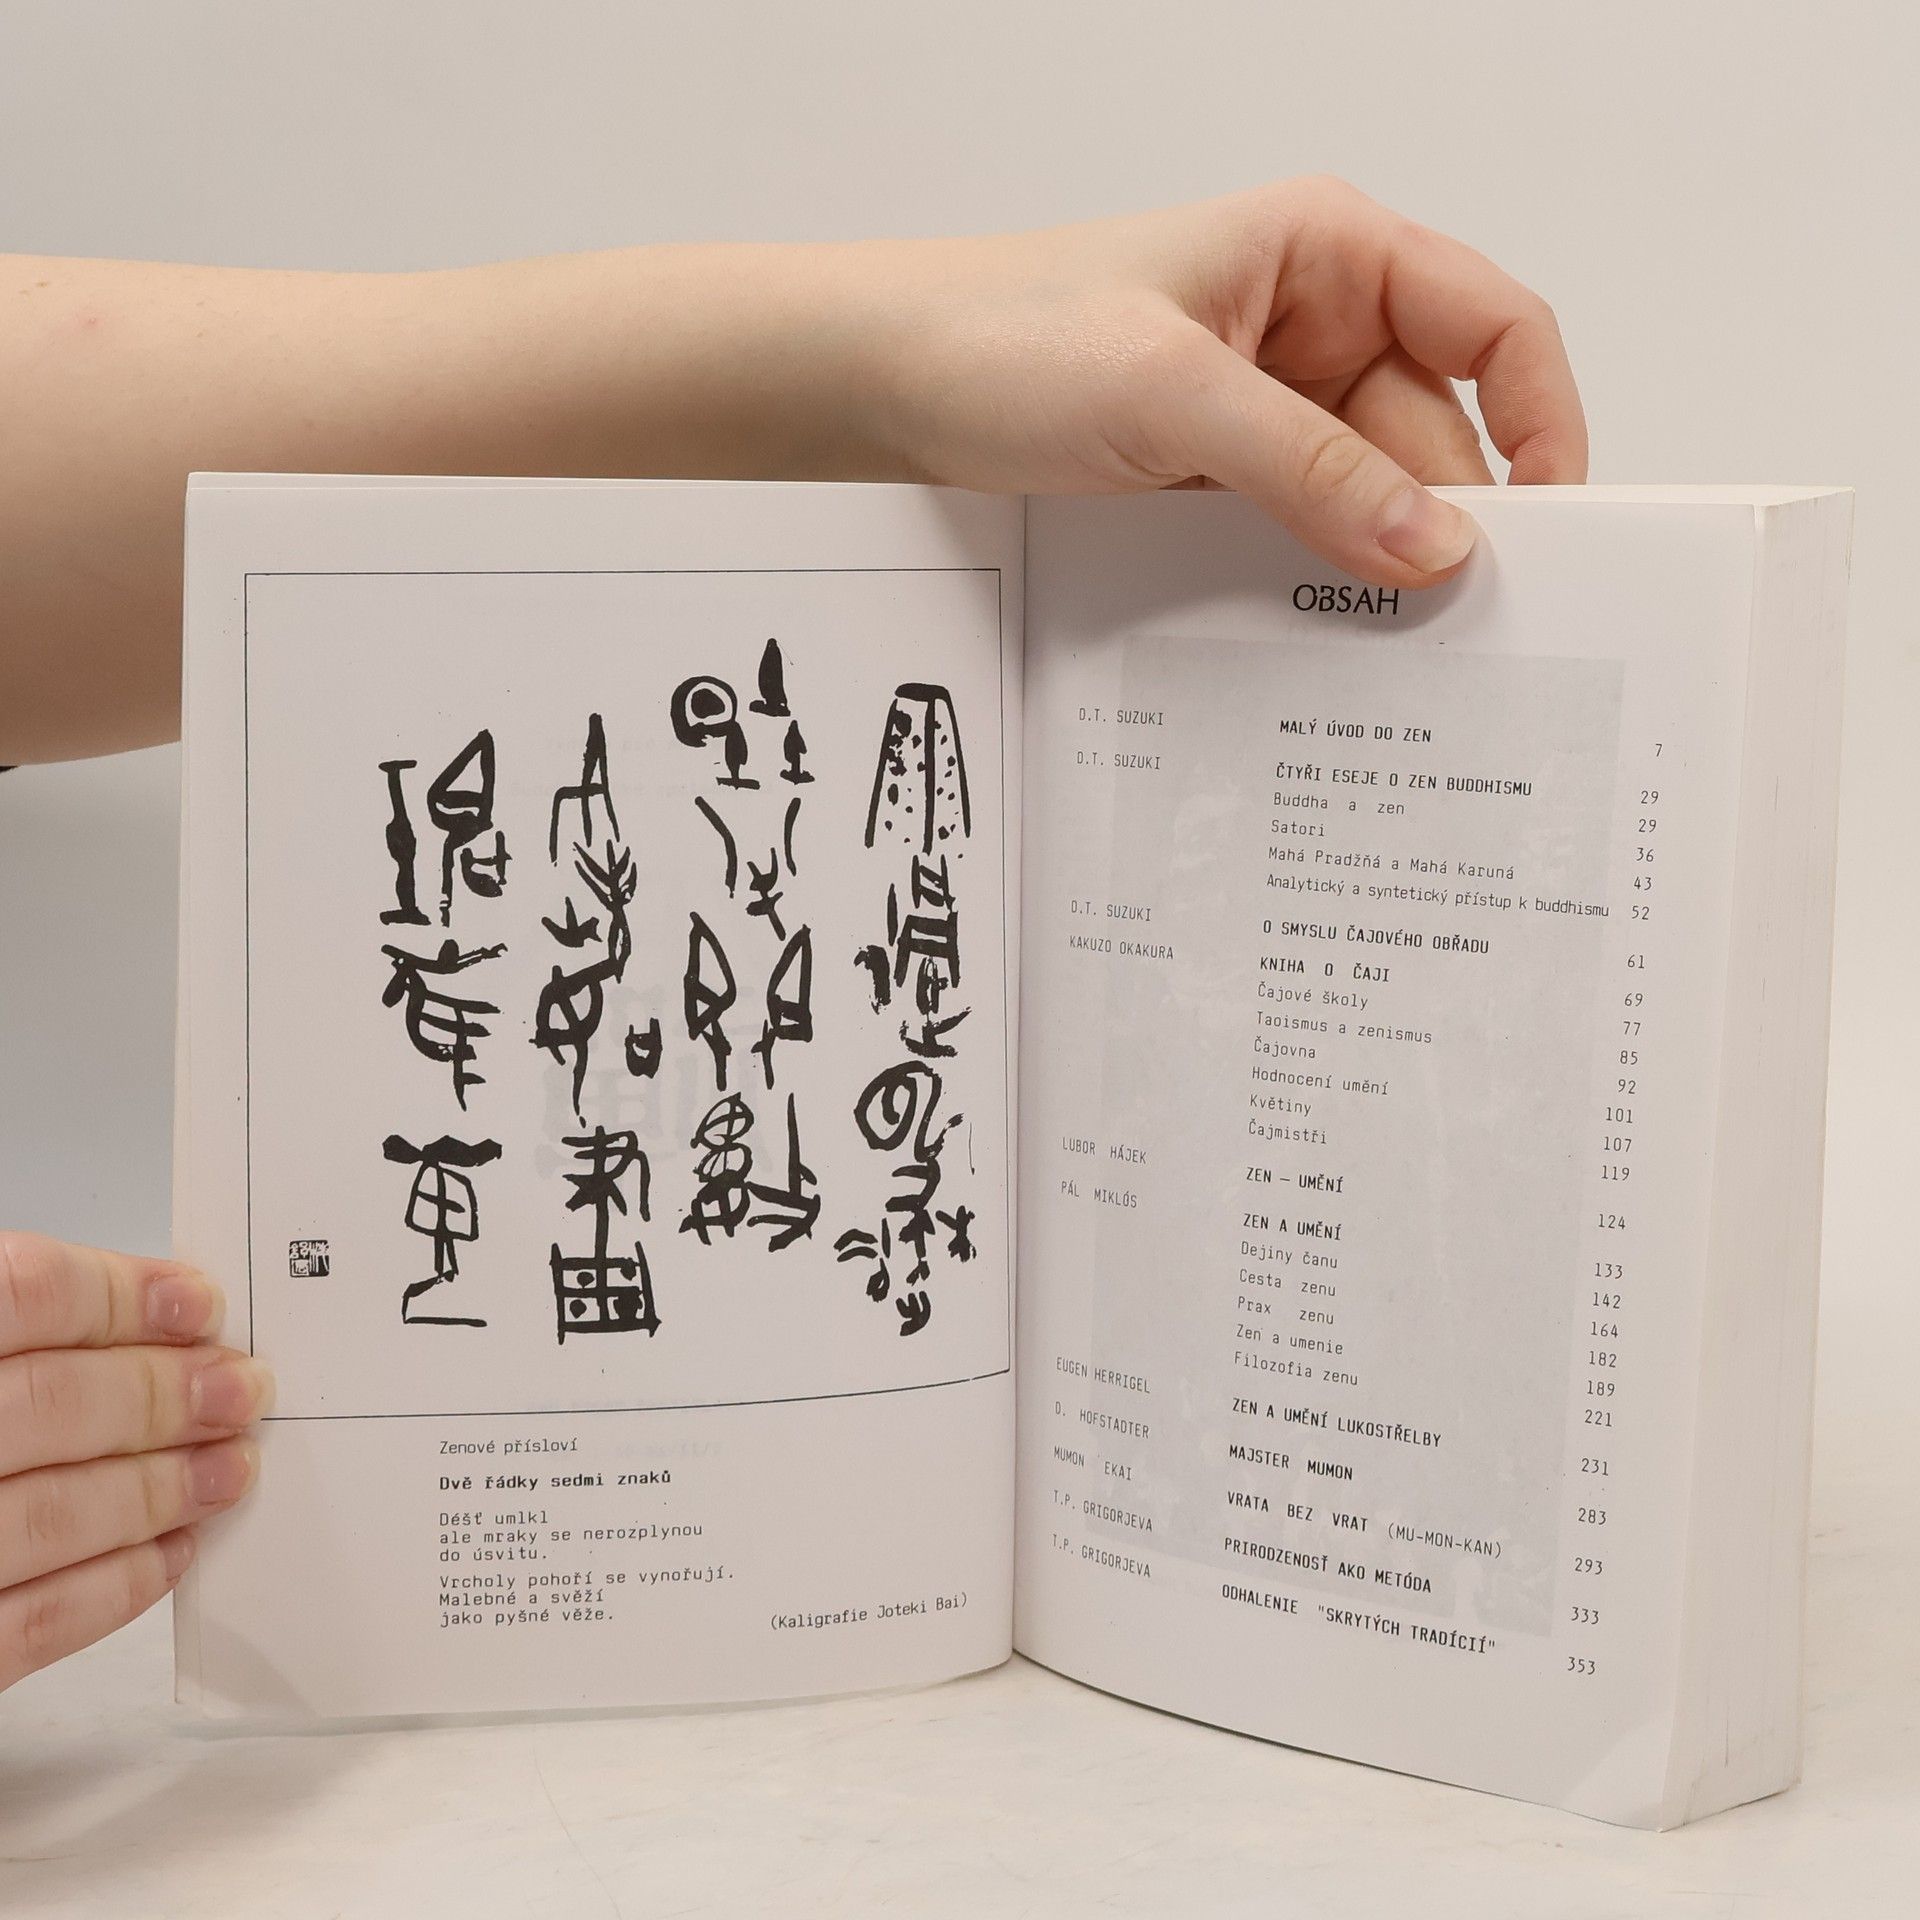 Zenové přísloví
Dvě řádky sedmi znaků
Déšť umlkl
ale mraky se nerozplynou
do úsvitu.
Vrcholy pohoří se vynořují.
Malebné a svěží
jako pyšné věže.
(Kaligrafie Joteki Bai)
OBSAH
D.T. SUZUKI MALÝ ÚVOD DO ZEN 7
D.T. SUZUKI ČTYŘI ESEJE O ZEN BUDDHISMU 29
Buddha a zen 29
Satori 36
Mahá Pradžňá a Mahá Karuná 43
Analytický a syntetický přístup k buddhismu 52
D.T. SUZUKI O SMYSLU ČAJOVÉHO OBŘADU 61
KAKUZO OKAKURA KNIHA O ČAJI 69
Čajové školy 77
Taoismus a zenismus 85
Čajovna 92
Hodnocení umění 101
Květiny 107
Čajmistři 119
LUBOR HÁJEK ZEN – UMĚNÍ 124
PÁL MIKLÓS ZEN A UMĚNÍ 133
Dejiny čanu 142
Cesta zenu 164
Prax zenu 182
Zen a umenie 189
Filozofia zenu 221
EUGEN HERRIGEL ZEN A UMĚNÍ LUKOSTŘELBY 231
D. HOFSTADTER MAJSTER MUMON 283
MUMON EKAI VRATA BEZ VRAT (MU-MON-KAN) 293
T.P. GRIGORJEVA PRIRODZENOSŤ AKO METÓDA 333
T.P. GRIGORJEVA ODHALENIE "SKRYTÝCH TRADÍCIÍ" 353